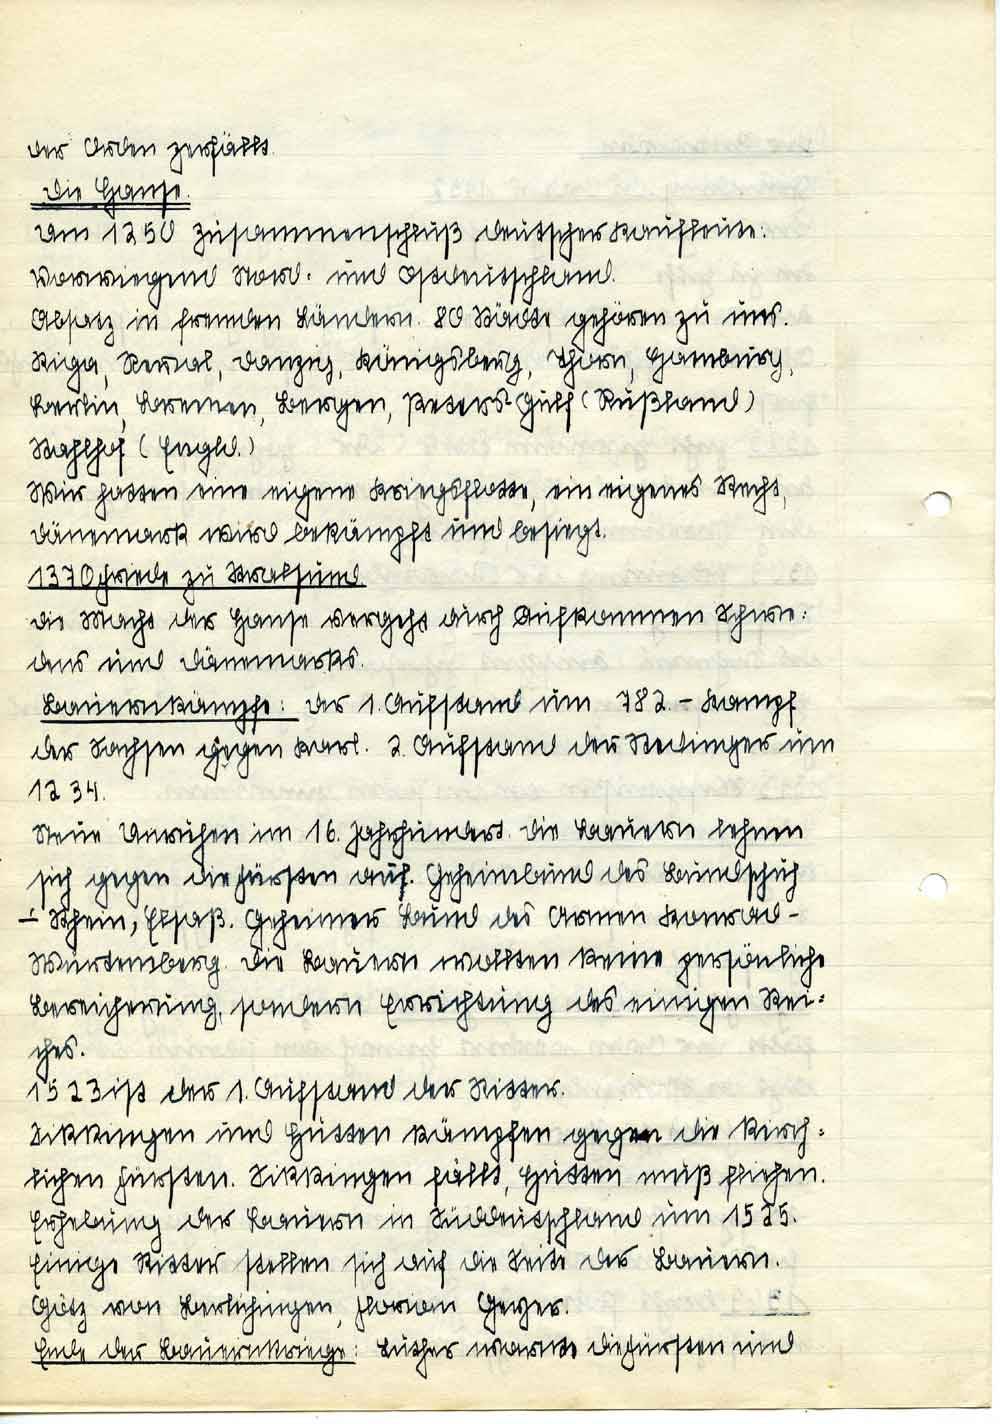 der Orden zerfällt.
Die Hanse.
Um 1250 Zusammenschluß deutscher Kaufleute.
Vorwiegend Nord- und Ostdeutschland.
Absatz in fremden Ländern. 80 Städte gehören zu uns.
Riga, Reval, Danzig, Königsberg, Thorn, Hamburg,
Berlin, Bremen, Bergen, Peters-Gulf (Rußland)
Stahlhof (Engld.)
Wir hatten eine eigene Kriegsflotte, ein eigenes Recht,
Dänemark wird bekämpft und besiegt.
1370 Friede zu Stralsund
Die Macht der Hanse vergeht durch Aufkommen Schwe-
dens und Dänemarks.
Bauernkämpfe: Der 1. Aufstand um 782. - Kampf
der Sachsen gegen Karl. 2. Aufstand der Stedinger um
1234.
Neue Unruhen im 16. Jahrhundert. Die Bauern lehnen
sich gegen die Fürsten auf. Geheimbund des Bundschuh
- Rhein, Elsaß. Geheimer Bund des Armen Konrad -
Würtemberg. Die Bauern wollten keine persönliche
Bereicherung, sondern Errichtung des einigen Rei-
ches.
1523 ist der 1. Aufstand der Ritter.
Sikkingen und Hutten kämpfen gegen die kirch-
lichen Fürsten. Sikkingen fällt, Hutten muß fliehen.
Erhebung der Bauern in Süddeutschland um 1525.
Einige Ritter stellen sich auf die Seite der Bauern.
Götz von Berlichingen, Florian Geyer.
Ende der Bauernkriege: Luther warnte die Fürsten und